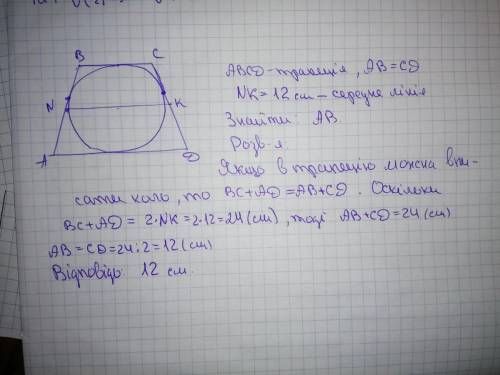 B C
N K
A D
ABCD - трапеція, AB = CD
NK = 12 см - середня лінія
Знайти: AB.
Розв-я
Якщо в трапецію можна впи-
сати коло, то BC + AD = AB + CD. Оскільки
BC + AD = 2·NK = 2·12 = 24 (см), тоді AB + CD = 24 (см)
AB = CD = 24 : 2 = 12 (см)
Відповідь: 12 см.